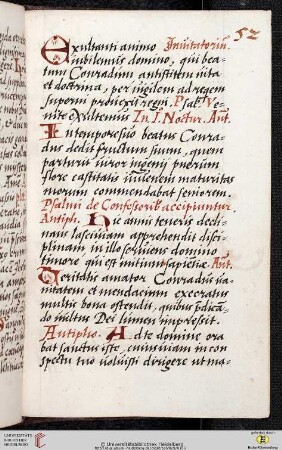 52
Exultanti animo Inuitatoriū.
iubilemus domino, qui bea-
tum Conradum antistitem uita
et doctrina, per uigilem ad regem
superū prouexit regni. Psal. Ve-
nite exultemus In. I. Noctur. Ant.
In tempore suo beatus Conra-
dus dedit fructum suum, quem
parturiit uiror ingenij puerum
flore castitatis iuuenem maturitas
morum commendabat seniorem.
Psalmi de Confessorib' accipiuntur.
Antiph. Hic annis teneris decli-
nans lasciuiam apprehendit disci-
plinam in illo soluens domino
timore qui est initium sapientiæ. Ant.
Veritatis amator Conradus ua-
nitatem et mendacium execratus
multis bona ostendit, quibus prædica-
do uultus Dei lumen impressit.
Antipho. Ad te domine ora-
bat sanctus iste, cum uiam in con-
spectu tuo uoluisti dirigere ut ma-
UNIVERSITÄTS-
BIBLIOTHEK
HEIDELBERG
© Universitätsbibliothek Heidelberg
gefördert durch